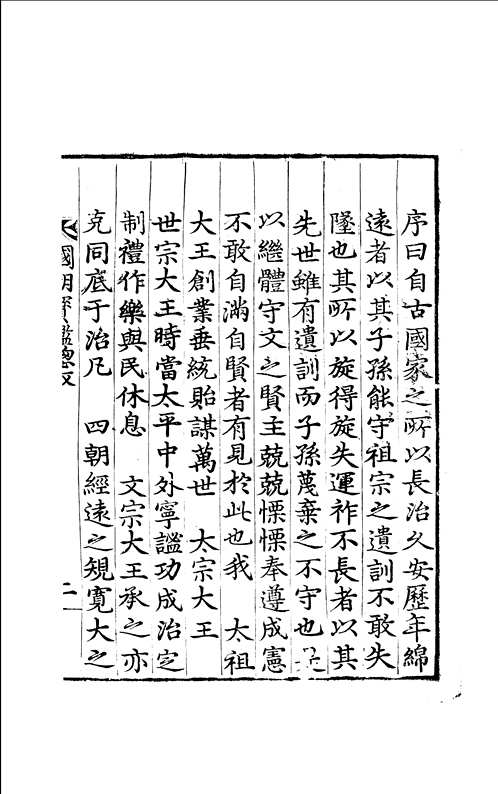 序曰自古國家之所以長治久安歷年綿
遠者以其子孫能守祖宗之遺訓不敢失
墜也其所以旋得旋失運祚不長者以其
先世雖有遺訓而子孫蔑棄之不守也是
以繼體守文之賢主兢兢慄慄奉遵成憲
不敢自滿自賢者有見於此也我　太祖
大王創業垂統貽謀萬世　太宗大王
世宗大王時當太平中外寧謐功成治定
制禮作樂與民休息　文宗大王承之亦
克同底于治凡　四朝經遠之規寬大之
國朝寶鑑總序